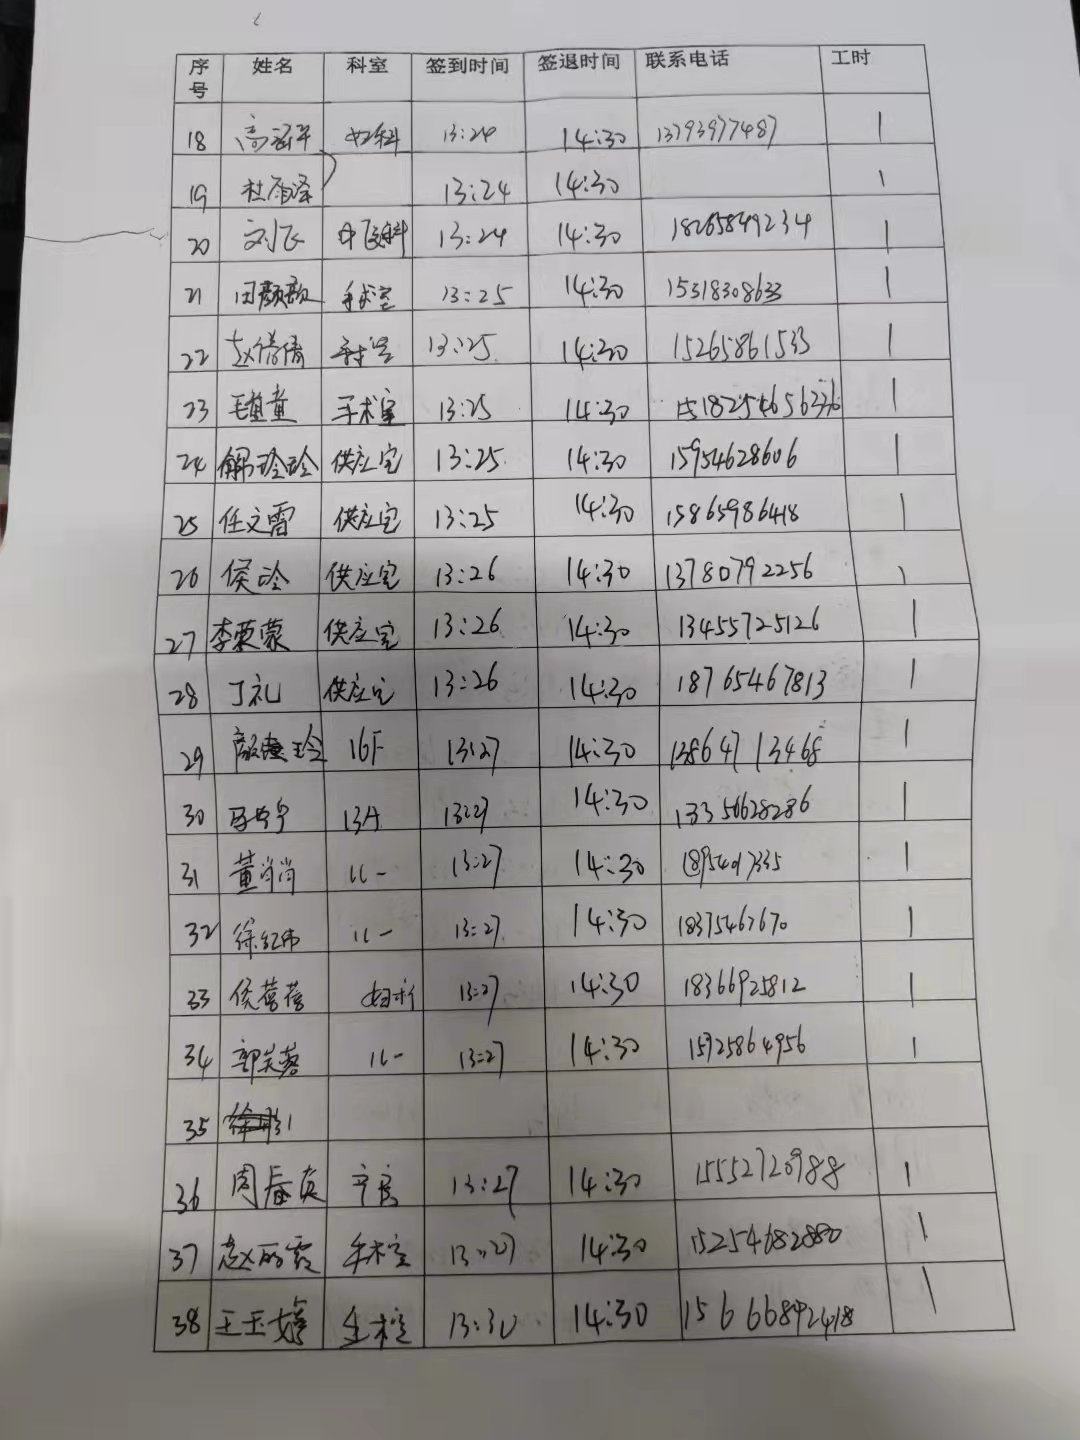 序号 姓名 科室 签到时间 签退时间 联系电话 工时
18 妇科 13:24 14:30 13793977487 1
19 杜雨泽 13:24 14:30 1
20 刘飞 中医科 13:24 14:30 18265849234 1
21 田颜歌 手术室 13:25 14:30 15318308633 1
22 赵倩倩 手术室 13:25 14:30 15265861533 1
23 手术室 13:25 14:30 1
24 解玲玲 供应室 13:25 14:30 15954628606 1
25 任文雷 供应室 13:25 14:30 15865986418 1
26 侯玲 供应室 13:26 14:30 13780792256 1
27 李荣蒙 供应室 13:26 14:30 13455725126 1
28 丁礼 供应室 13:26 14:30 18765467813 1
29 16F 13:27 14:30 13864713468 1
30 13A 13:27 14:30 1
31 董肖肖 13:27 14:30 1
32 徐红伟 13:27 14:30 1
33 侯蓓蓓 妇科 13:27 14:30 18366925812 1
34 13:27 14:30 15725864956 1
35
36 周春贞 产房 13:27 14:30 15552720988 1
37 赵丽霞 手术室 13:27 14:30 15254682880 1
38 王玉婷 13:30 14:30 1